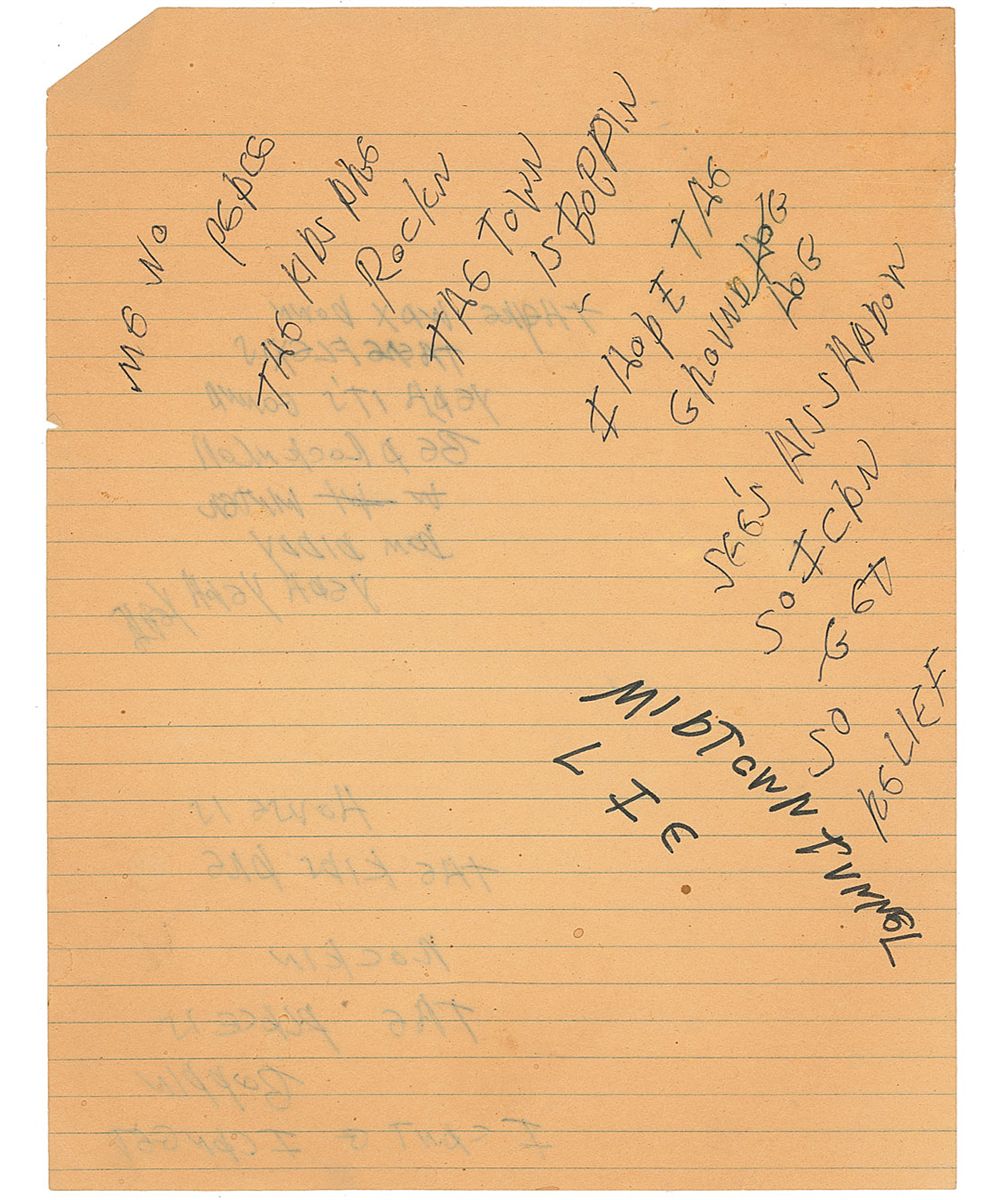 ME NO
PEACE
THE KIDS ARE
ROCKN
THE TOWN
IS BOPPIN
I HOPE THE
GROUND HOG
HOG
SEE'S HIS SHADOW
SO I CAN
GET
SO
RELIEF
MIDTOWN TUNNEL
LIE
YEAH IT'S
BE A
WINTER
YEAH YEAH YEAH
HOUSE IS
THE KIDS ARE
ROCKIN
THE PLACE IS
BOPPIN